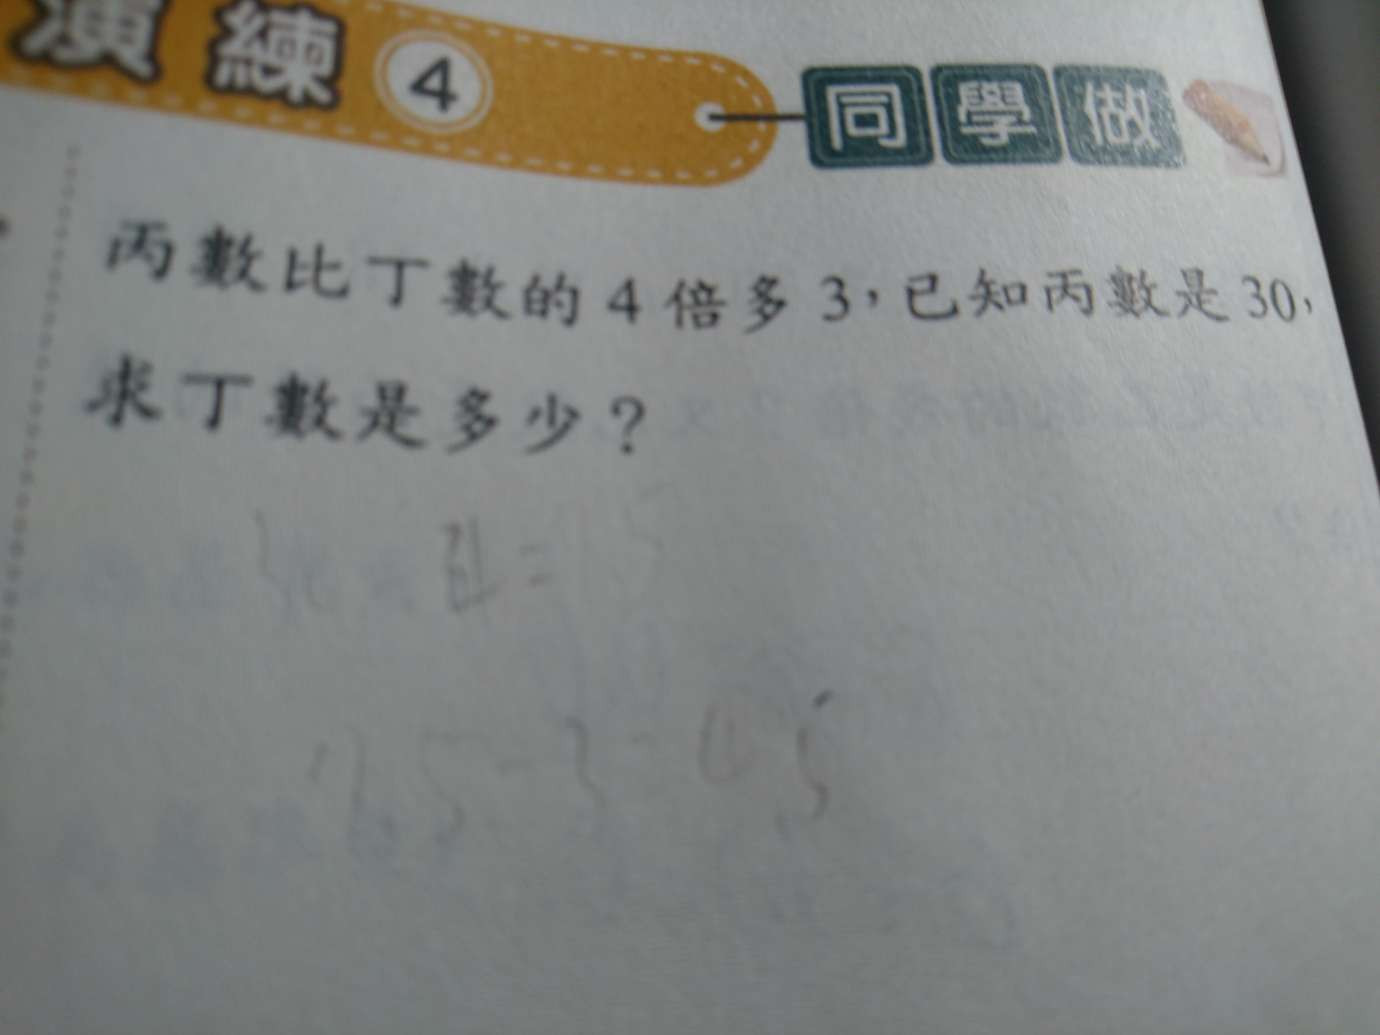 演練 4 同學做
丙數比丁數的4倍多3，已知丙數是30，
求丁數是多少？